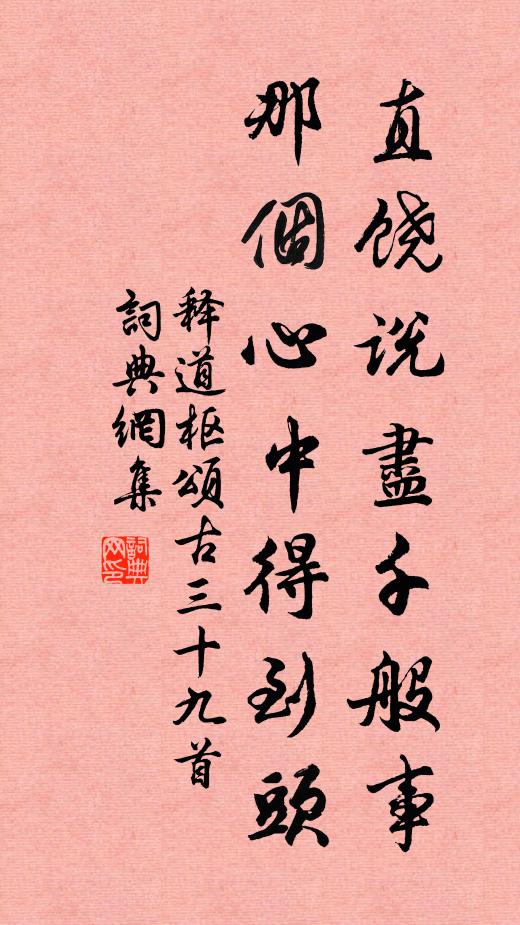 直饶说盡千般事
那個心中得到頭
释道枢頌古三十九首
詞典網集
詞典网印